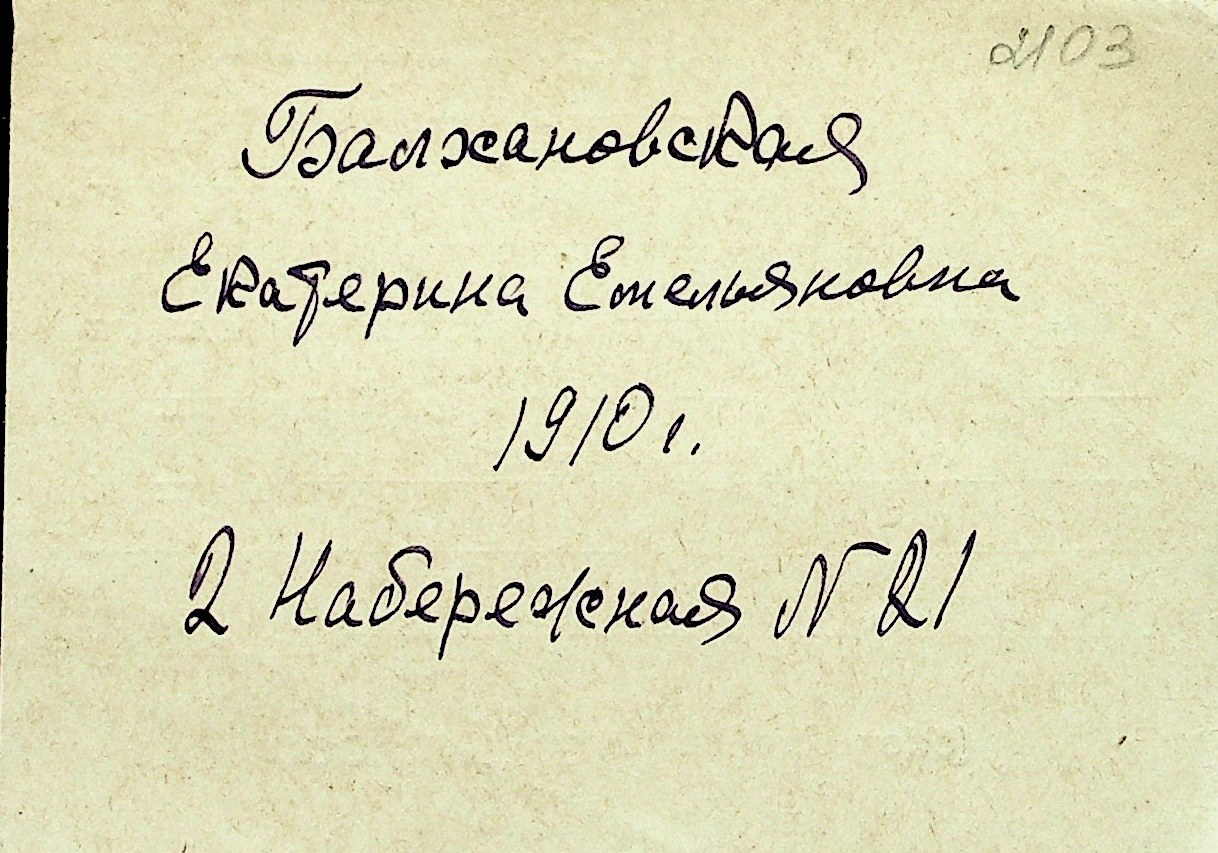 2103
Балхановская
Екатерина Емельяновна
1910 г.
2 Набережная N 21